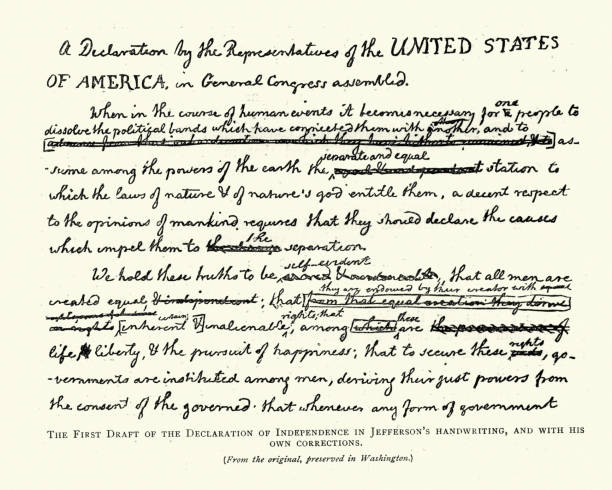 A Declaration by the Representatives of the UNITED STATES
OF AMERICA, in General Congress assembled.
When in the course of human events it becomes necessary for one people to
dissolve the political bands which have connected them with another, and to
as-
separate and equal
-sume among the powers of the earth the station to
which the laws of nature & of nature's god entitle them, a decent respect
to the opinions of mankind requires that they should declare the causes
which impel them to the separation.
self-evident
We hold these truths to be , that all men are
they are endowed by their creator with
created equal & independent; that from that equal creation they derive
rights; that these
inherent & inalienable, among which are
life, & liberty, & the pursuit of happiness; that to secure these rights, go-
-vernments are instituted among men, deriving their just powers from
the consent of the governed. that whenever any form of government
THE FIRST DRAFT OF THE DECLARATION OF INDEPENDENCE IN JEFFERSON'S HANDWRITING, AND WITH HIS
OWN CORRECTIONS.
(From the original, preserved in Washington.)